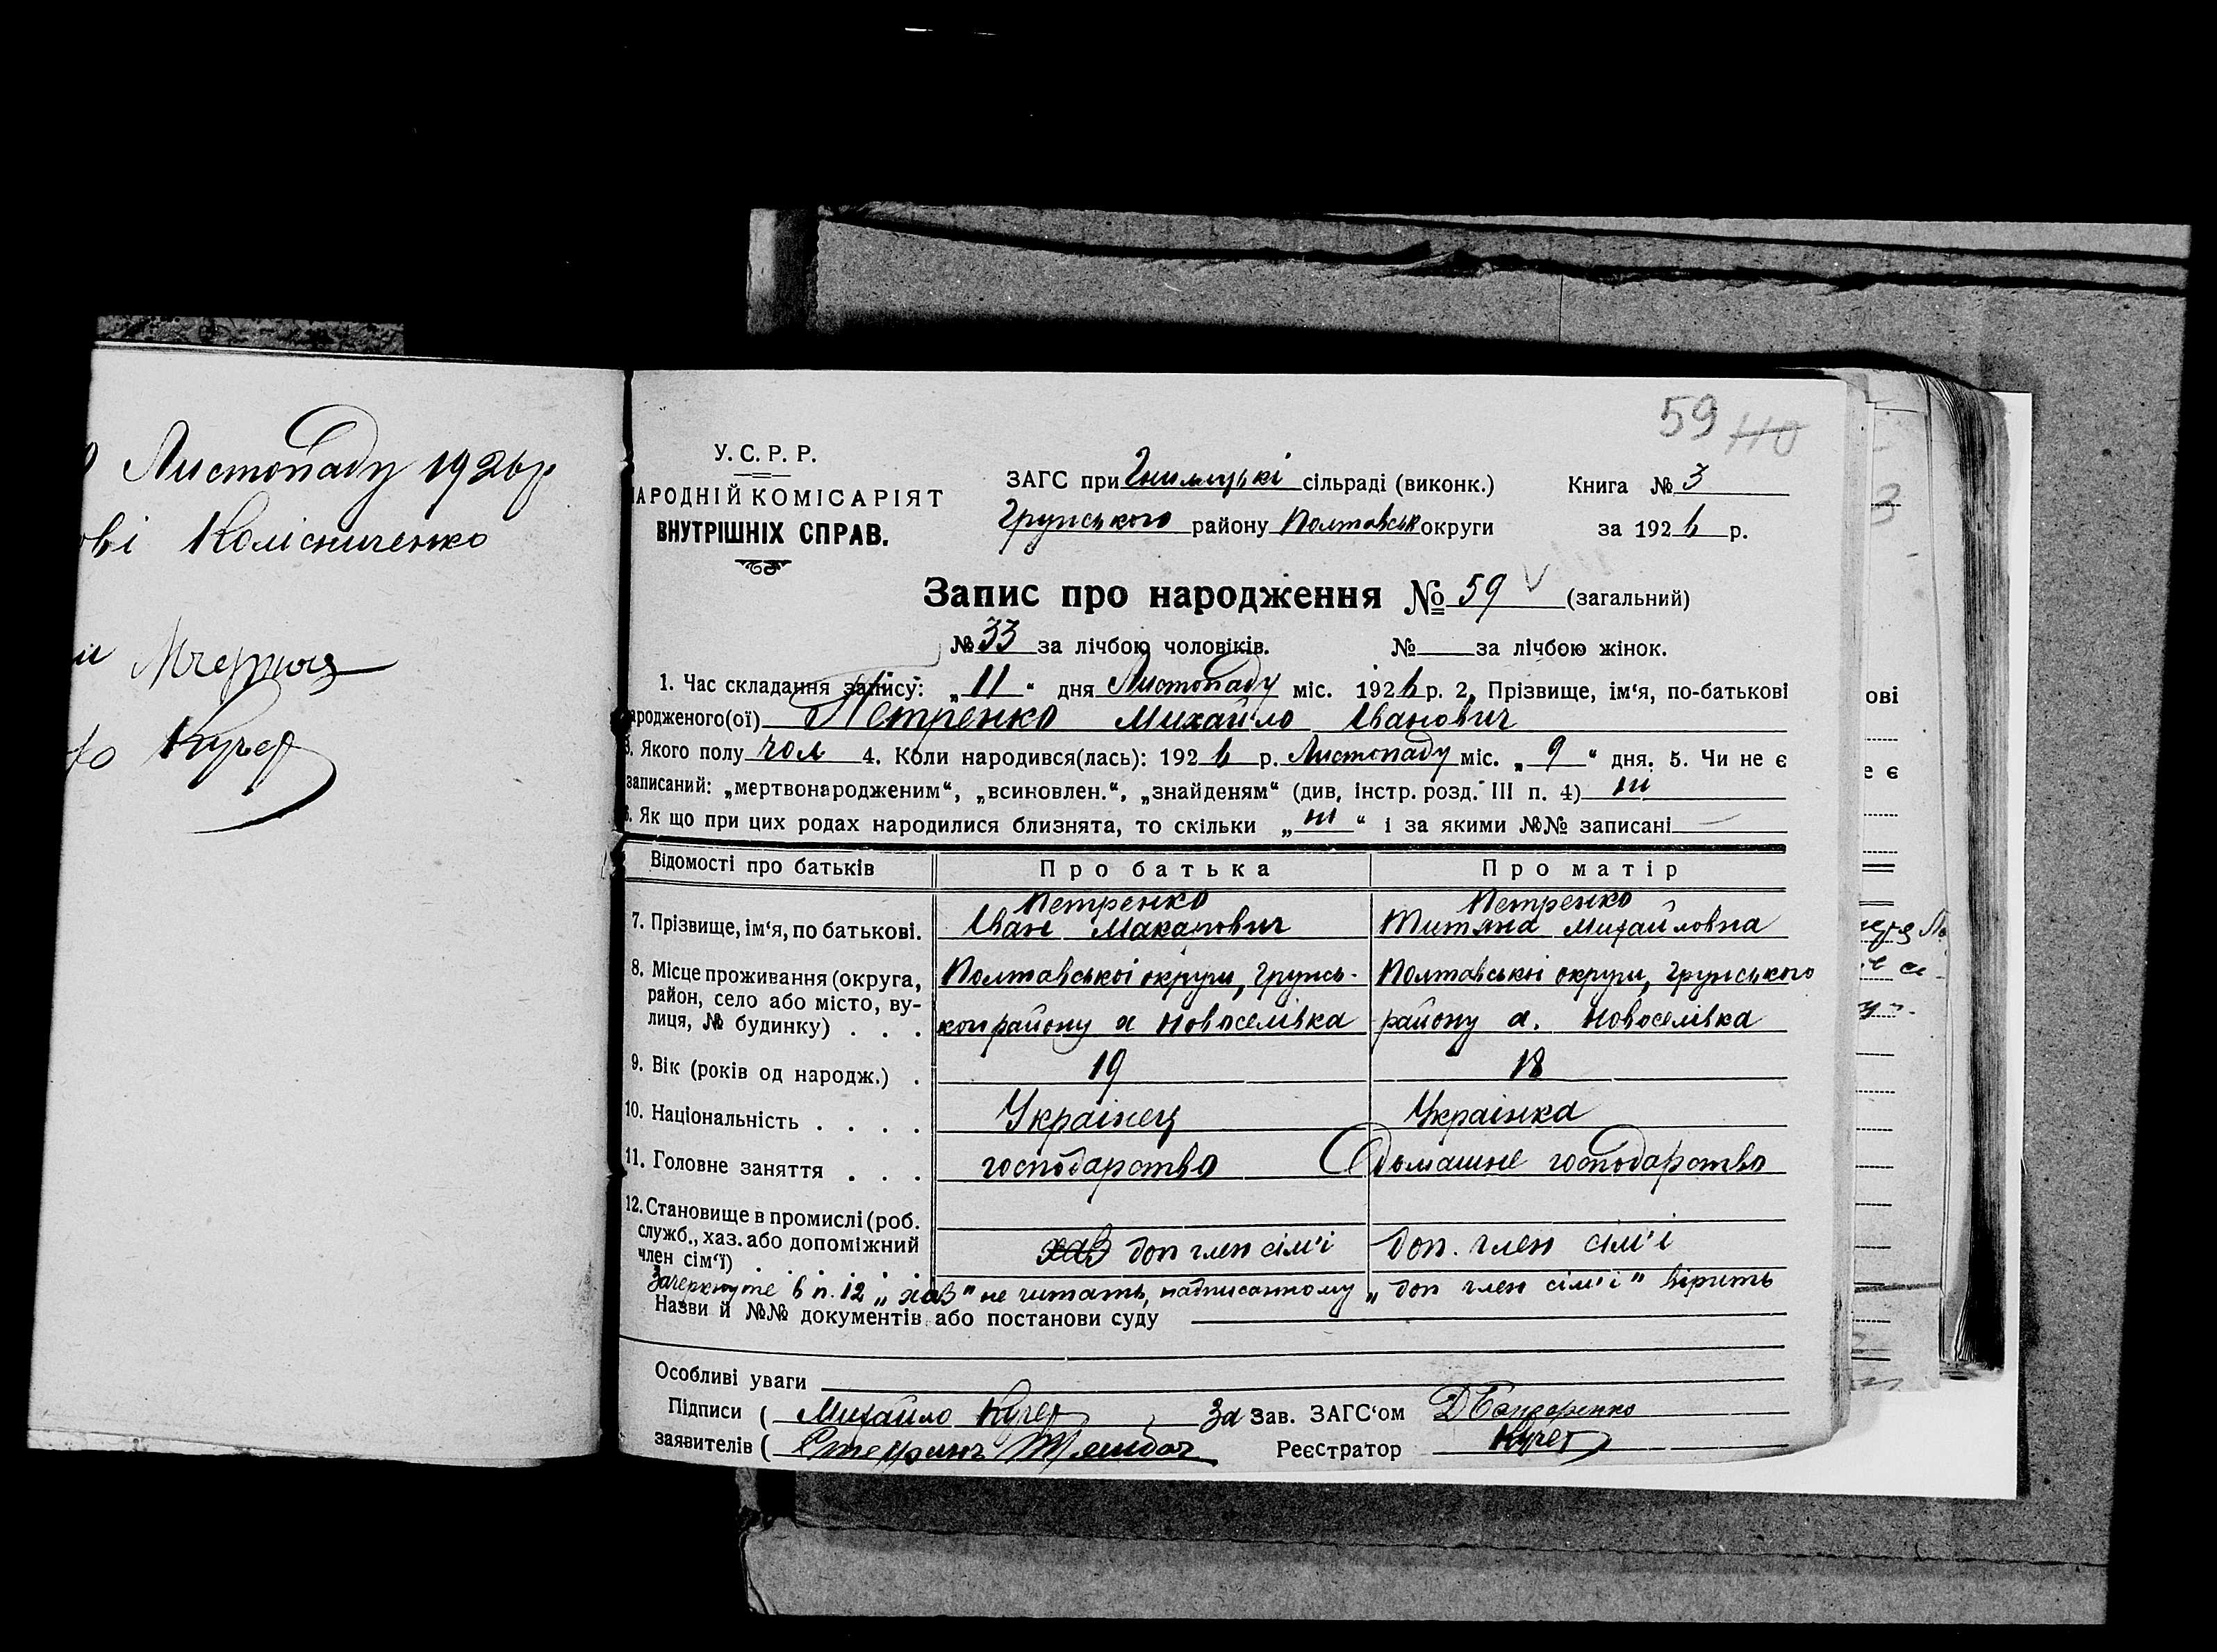 Листопаду 1926 р
ові Колісниченко
Кучер
59 110
У.С.Р.Р.
АРОДНІЙ КОМІСАРІЯТ
ВНУТРІШНІХ СПРАВ.
ЗАГС при сільраді (виконк.)
Грунського району Полтавськ округи
Книга № 3
за 1926 р.
Запис про народження № 59 (загальний)
№ 33 за лічбою чоловіків. № за лічбою жінок.
1. Час складання запису: „11“ дня Листопаду міс. 1926 р. 2, Прізвище, ім‘я, по-батькові
ародженого(ої) Петренко Михайло Іванович
3. Якого полу чол 4. Коли народився(лась): 1926 р. Листопаду міс. „9“ дня. 5. Чи не є
записаний: „мертвонародженим“, „всиновлен.“, „знайденям“ (див, інстр. розд. III п. 4) ні
6. Як що при цих родах народилися близнята, то скільки „ні“ і за якими №№ записані —
Відомості про батьків Про батька Про матір
Петренко Петренко
7. Прізвище, ім‘я, по батькові. Іван Макарович Титяна Михайловна
8. Місце проживання (округа, Полтавськоі округи, Грунсь- Полтавськоі округи, Грунського
район, село або місто, ву-
лиця, № будинку) . . . кого району х Новоселівка району х. Новоселівка
9. Вік (років од народж.) . 19 18
10. Національність . . . . Украінец Украінка
11. Головне заняття . . . господарство домашнє господарство
12. Становище в промислі (роб.
служб., хаз. або допоміжний
член сім‘ї) . . . . . хаз доп член сім'і доп. член сім'і
Зачеркнуте в п. 12 „хаз" не читать, надписанному „доп член сім'і" вірить
Назви й №№ документів або постанови суду
Особливі уваги
Підписи ( Михайло Кучер За Зав. ЗАГС‘ом Д Бондаренко
заявителів ( Реєстратор Кучер